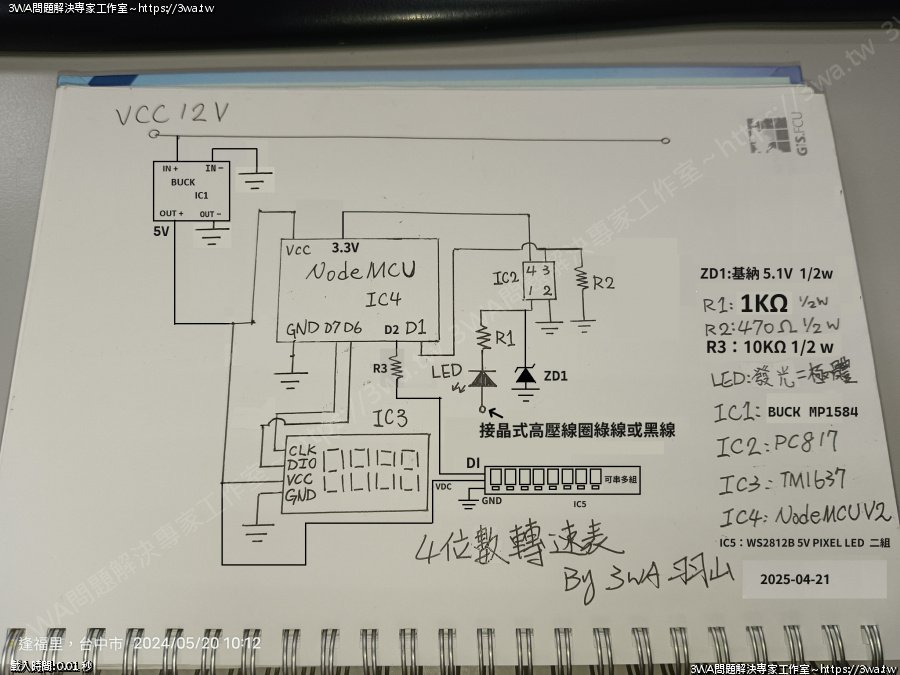 3WA問題解決專家工作室~https://3wa.tw
VCC 12V
GIS.FCU
IN+ IN-
BUCK
IC1
OUT+ OUT-
5V
VCC 3.3V
NodeMCU
IC4
GND D7 D6 D2 D1
R3
IC2
4 3
1 2
R2
R1
LED
ZD1
接晶式高壓線圈綠線或黑線
IC3
CLK
DIO
VCC
GND
DI
VDC
GND
可串多組
IC5
4位數轉速表
By 3WA 羽山
ZD1:基納 5.1V 1/2w
R1: 1KΩ 1/2W
R2:470Ω 1/2W
R3:10KΩ 1/2 w
LED:發光二極體
IC1: BUCK MP1584
IC2:PC817
IC3: TM1637
IC4: NodeMCU V2
IC5:WS2812B 5V PIXEL LED 二組
2025-04-21
3WA問題解決專家工作室~https://3wa.tw
逢福里,台中市 2024/05/20 10:12
載入時間:0.01 秒
3WA問題解決專家工作室~https://3wa.tw